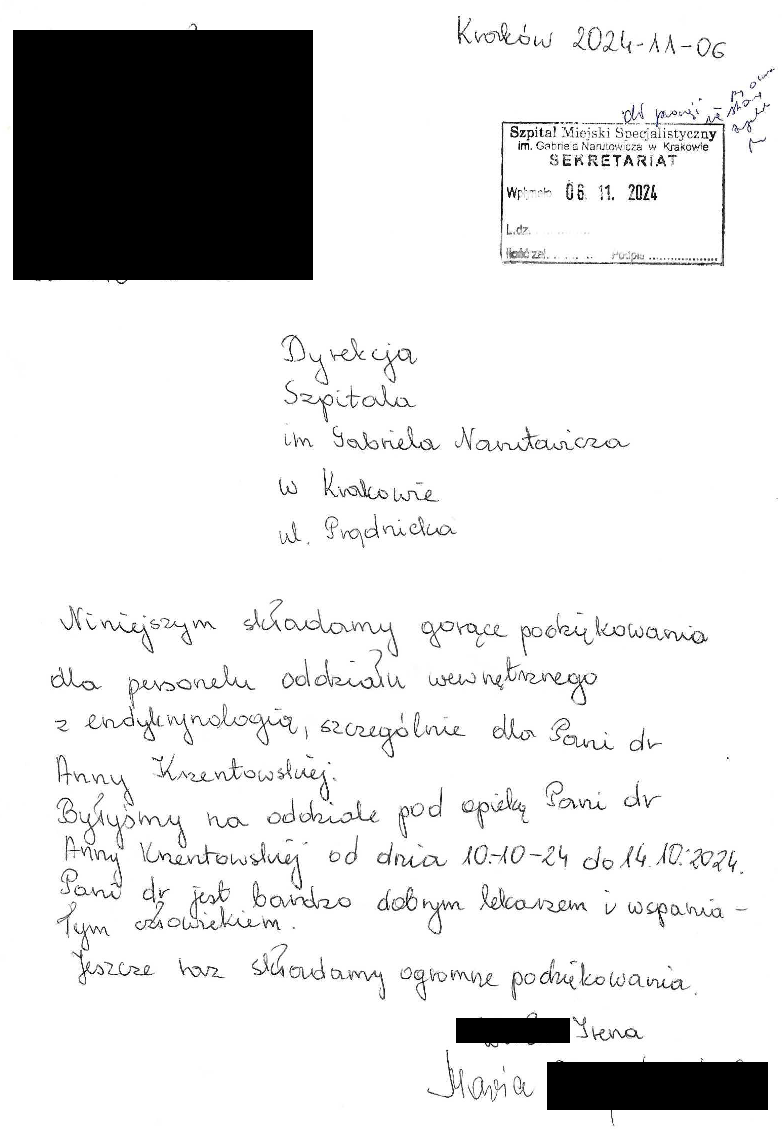 Kraków 2024-11-06
Szpital Miejski Specjalistyczny
im. Gabriela Narutowicza w Krakowie
SEKRETARIAT
Wpłynęło 06. 11. 2024
L.dz.
Ilość zał. Podpis
Dyrekcja
Szpitala
im Gabriela Narutowicza
w Krakowie
ul. Prądnicka
Niniejszym składamy gorące podziękowania
dla personelu oddziału wewnętrznego
z endykrynologią, szczególnie dla Pani dr
Anny Krzentowskiej.
Byłyśmy na oddziale pod opieką Pani dr
Anny Krzentowskiej od dnia 10.10-24 do 14.10.2024.
Pani dr jest bardzo dobrym lekarzem i wspania-
łym człowiekiem.
Jeszcze raz składamy ogromne podziękowania.
Irena
Maria